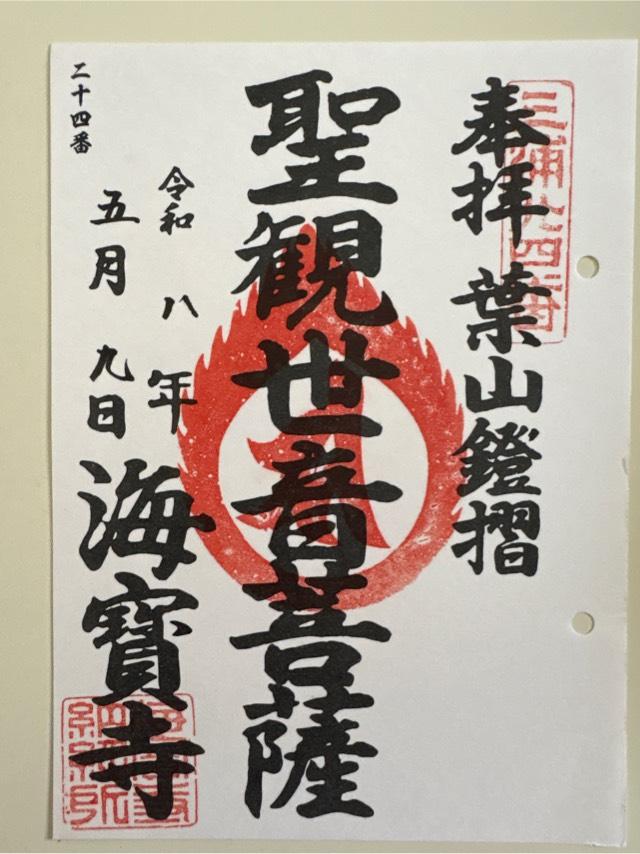 奉拝 葉山鐙摺
三浦廿四番
聖観世音菩薩
令和八年
五月九日
海寶寺
二十四番